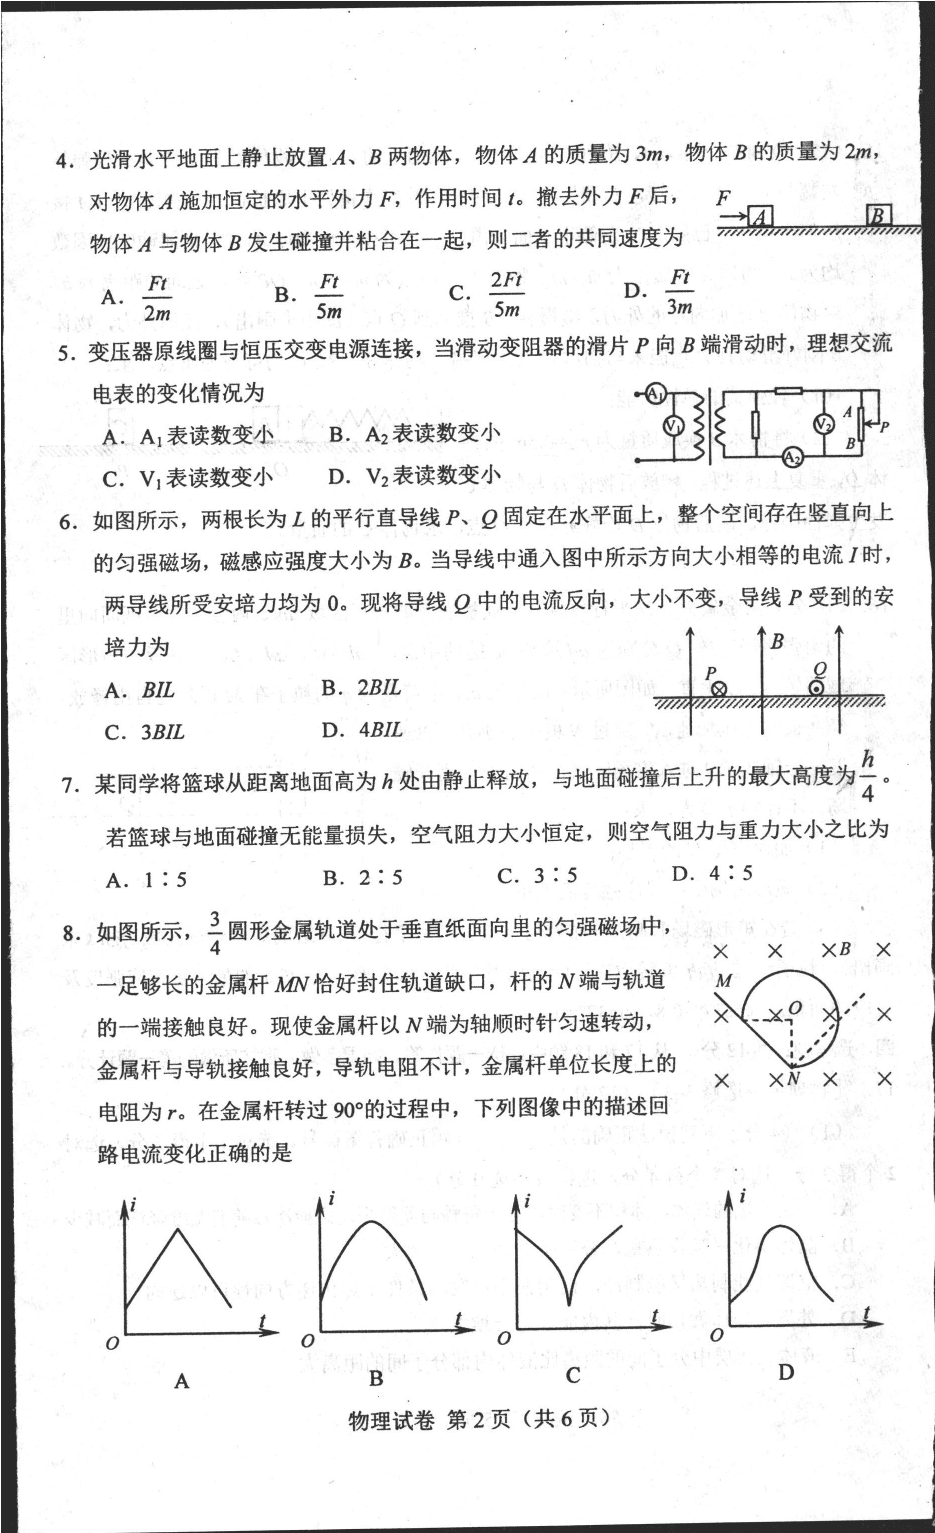 4．光滑水平地面上静止放置 A、B 两物体，物体 A 的质量为 3m，物体 B 的质量为 2m，
对物体 A 施加恒定的水平外力 F，作用时间 t。撤去外力 F 后，
物体 A 与物体 B 发生碰撞并粘合在一起，则二者的共同速度为
F
A
B
A．Ft/2m B．Ft/5m C．2Ft/5m D．Ft/3m
5．变压器原线圈与恒压交变电源连接，当滑动变阻器的滑片 P 向 B 端滑动时，理想交流
电表的变化情况为
A．A₁表读数变小 B．A₂表读数变小
C．V₁表读数变小 D．V₂表读数变小
A₁
V₁
V₂
A
P
B
A₂
6．如图所示，两根长为 L 的平行直导线 P、Q 固定在水平面上，整个空间存在竖直向上
的匀强磁场，磁感应强度大小为 B。当导线中通入图中所示方向大小相等的电流 I 时，
两导线所受安培力均为 0。现将导线 Q 中的电流反向，大小不变，导线 P 受到的安
培力为
A．BIL B．2BIL
C．3BIL D．4BIL
B
P
Q
7．某同学将篮球从距离地面高为 h 处由静止释放，与地面碰撞后上升的最大高度为h/4。
若篮球与地面碰撞无能量损失，空气阻力大小恒定，则空气阻力与重力大小之比为
A．1∶5 B．2∶5 C．3∶5 D．4∶5
8．如图所示，3/4圆形金属轨道处于垂直纸面向里的匀强磁场中，
一足够长的金属杆 MN 恰好封住轨道缺口，杆的 N 端与轨道
的一端接触良好。现使金属杆以 N 端为轴顺时针匀速转动，
金属杆与导轨接触良好，导轨电阻不计，金属杆单位长度上的
电阻为 r。在金属杆转过 90°的过程中，下列图像中的描述回
路电流变化正确的是
× × ×B ×
M
O
× × × ×
× ×N × ×
i i i i
t t t t
O O O O
A B C D
物理试卷 第 2 页（共 6 页）